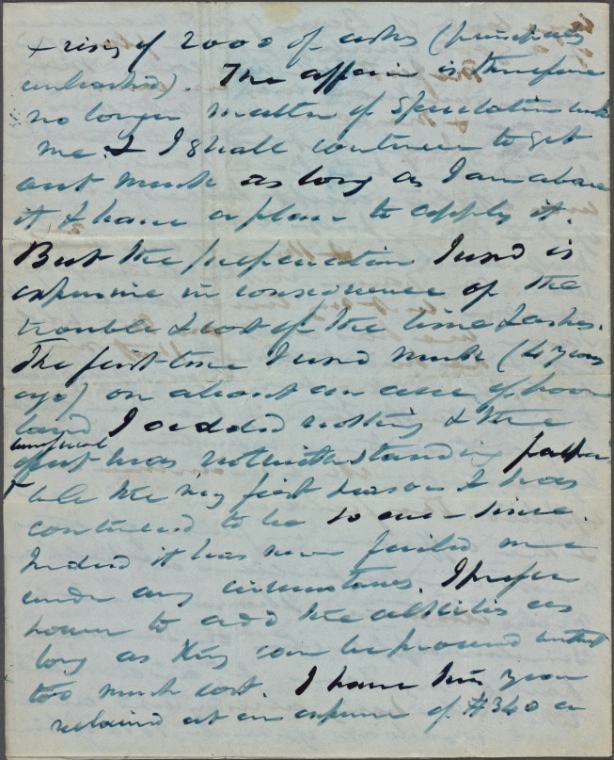 & rising of 2000 of ashes (principally
unleached). The affair is therefore
no longer matter of speculation with
me. & I shall continue to get
out muck as long as I am able
it, & have a place to apply it.
But the preparation I used is
expensive in consequence of the
trouble & cost of the lime & ashes.
The first time I used muck (4 years
ago) on about an acre of poor
land I added nothing & the
beneficial
was notwithstanding
the very first season & has
continued to be so ever since.
Indeed it has never failed me
under any circumstances. I prefer
however to add the alkalies as
long as they can be procured without
too much cost. I have this year
reclaimed at an expense of $340 a